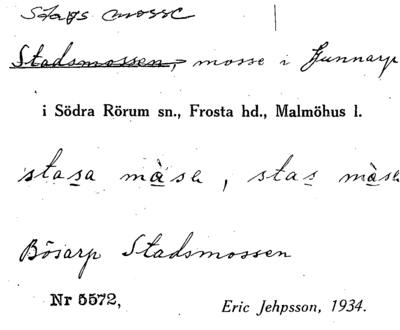 Stags mosse
Stadsmossen, mosse i Gunnarp
i Södra Rörum sn., Frosta hd., Malmöhus l.
stasa màse, stas màse
Bösarp Stadsmossen
Nr 5572,
Eric Jehpsson, 1934.